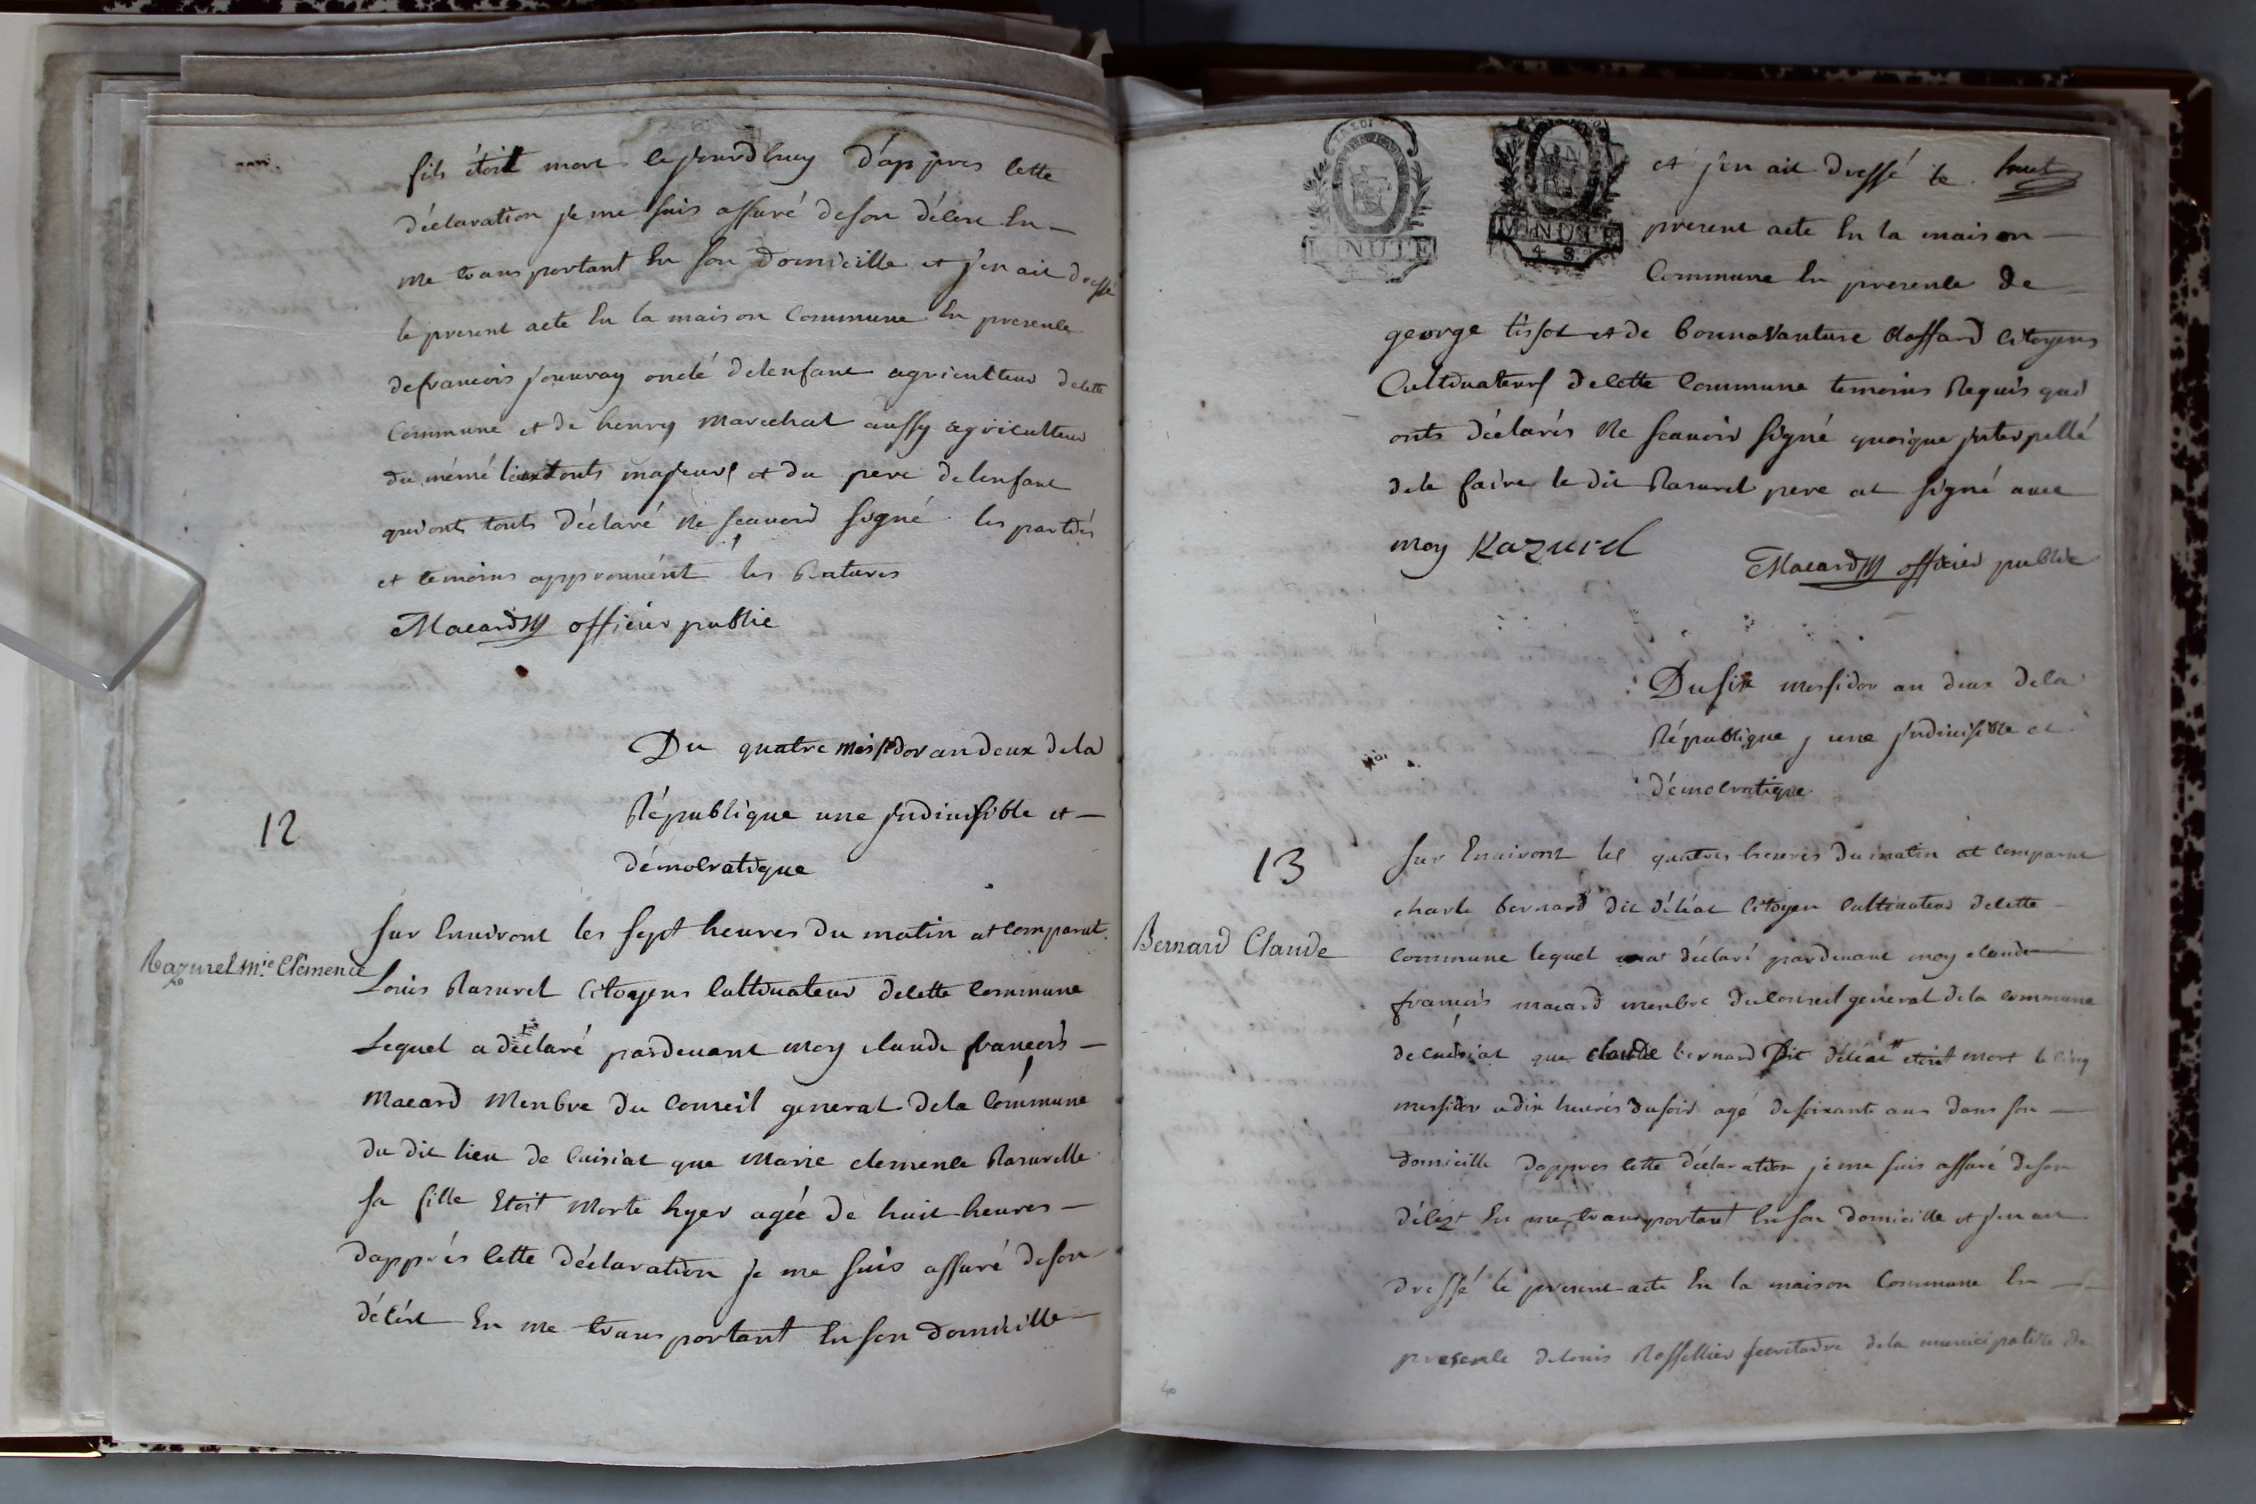 fils étoit mort le jourdhuy d'appres cette
déclaration je me suis assuré deson décéx En
me transportant En son domicille et j'en ait dressé
le present acte En la maison Commune En presence
defrancois jouvray oncle delenfant agriculteur decette
Commune et de henry Marechal aussy agriculteur
du mémé lieu touts majeurs et du pere delenfant
qui onts touts déclaré Ne scauoir signé les partiés
et temoins approuuént les Ratures
Macard officier public
Du quatre messidor an deux dela
République une jndiuisible et
démocratique
12
Sur Enuiront les sept heures du matin at comparut
Razurel Mie Clémence
Louis Rasurel Citoyens Cultiuateur decette Commune
Lequel a déclaré pardeuant moy claude francois
Macard Menbre du Conseil general dela Commune
du dit lieu de Cuisiat que Marie clemence Rasurelle
sa fille Etoit Morte hyer agée de huit heures
dapprés cette déclaration je me suis assuré deson
décést En me transportant En son domicille
MINUTE
4 S.
MINUTE
4 S.
et j'en ait dressé le
present acte En la maison
Commune En presence de
george tissot et de bonnavanture Rossard Citoyens
Cultiuateurs decette Commune temoins Requis qui
onts déclarés Ne scauoir signé quoique jnterpellé
dele faire le dit Rasurel pere at signé auec
moy Razurel
Macard officier public
Du six messidor an deux dela
République, une jndiuisible et
démocratique
13
Sur Enuiront les quatres heures du matin at comparut
charle bernard dit déléat Citoyen Cultiuateur decette
Bernard Claude
Commune lequel at déclaré pardeuant moy claude
francois macard menbre du Conseil general dela commune
de cuisiat que claude bernard Dit déléat etoit mort le cinq
messidor a dix heures dusoir agé desoixante ans dans son
domicille dappres cette déclaration je me suis assuré deson
décést En me transportant En son domicille et j'en ait
dressé le present acte En la maison Commune En
presence delouis Rossellier secretaire dela municipalité de
40